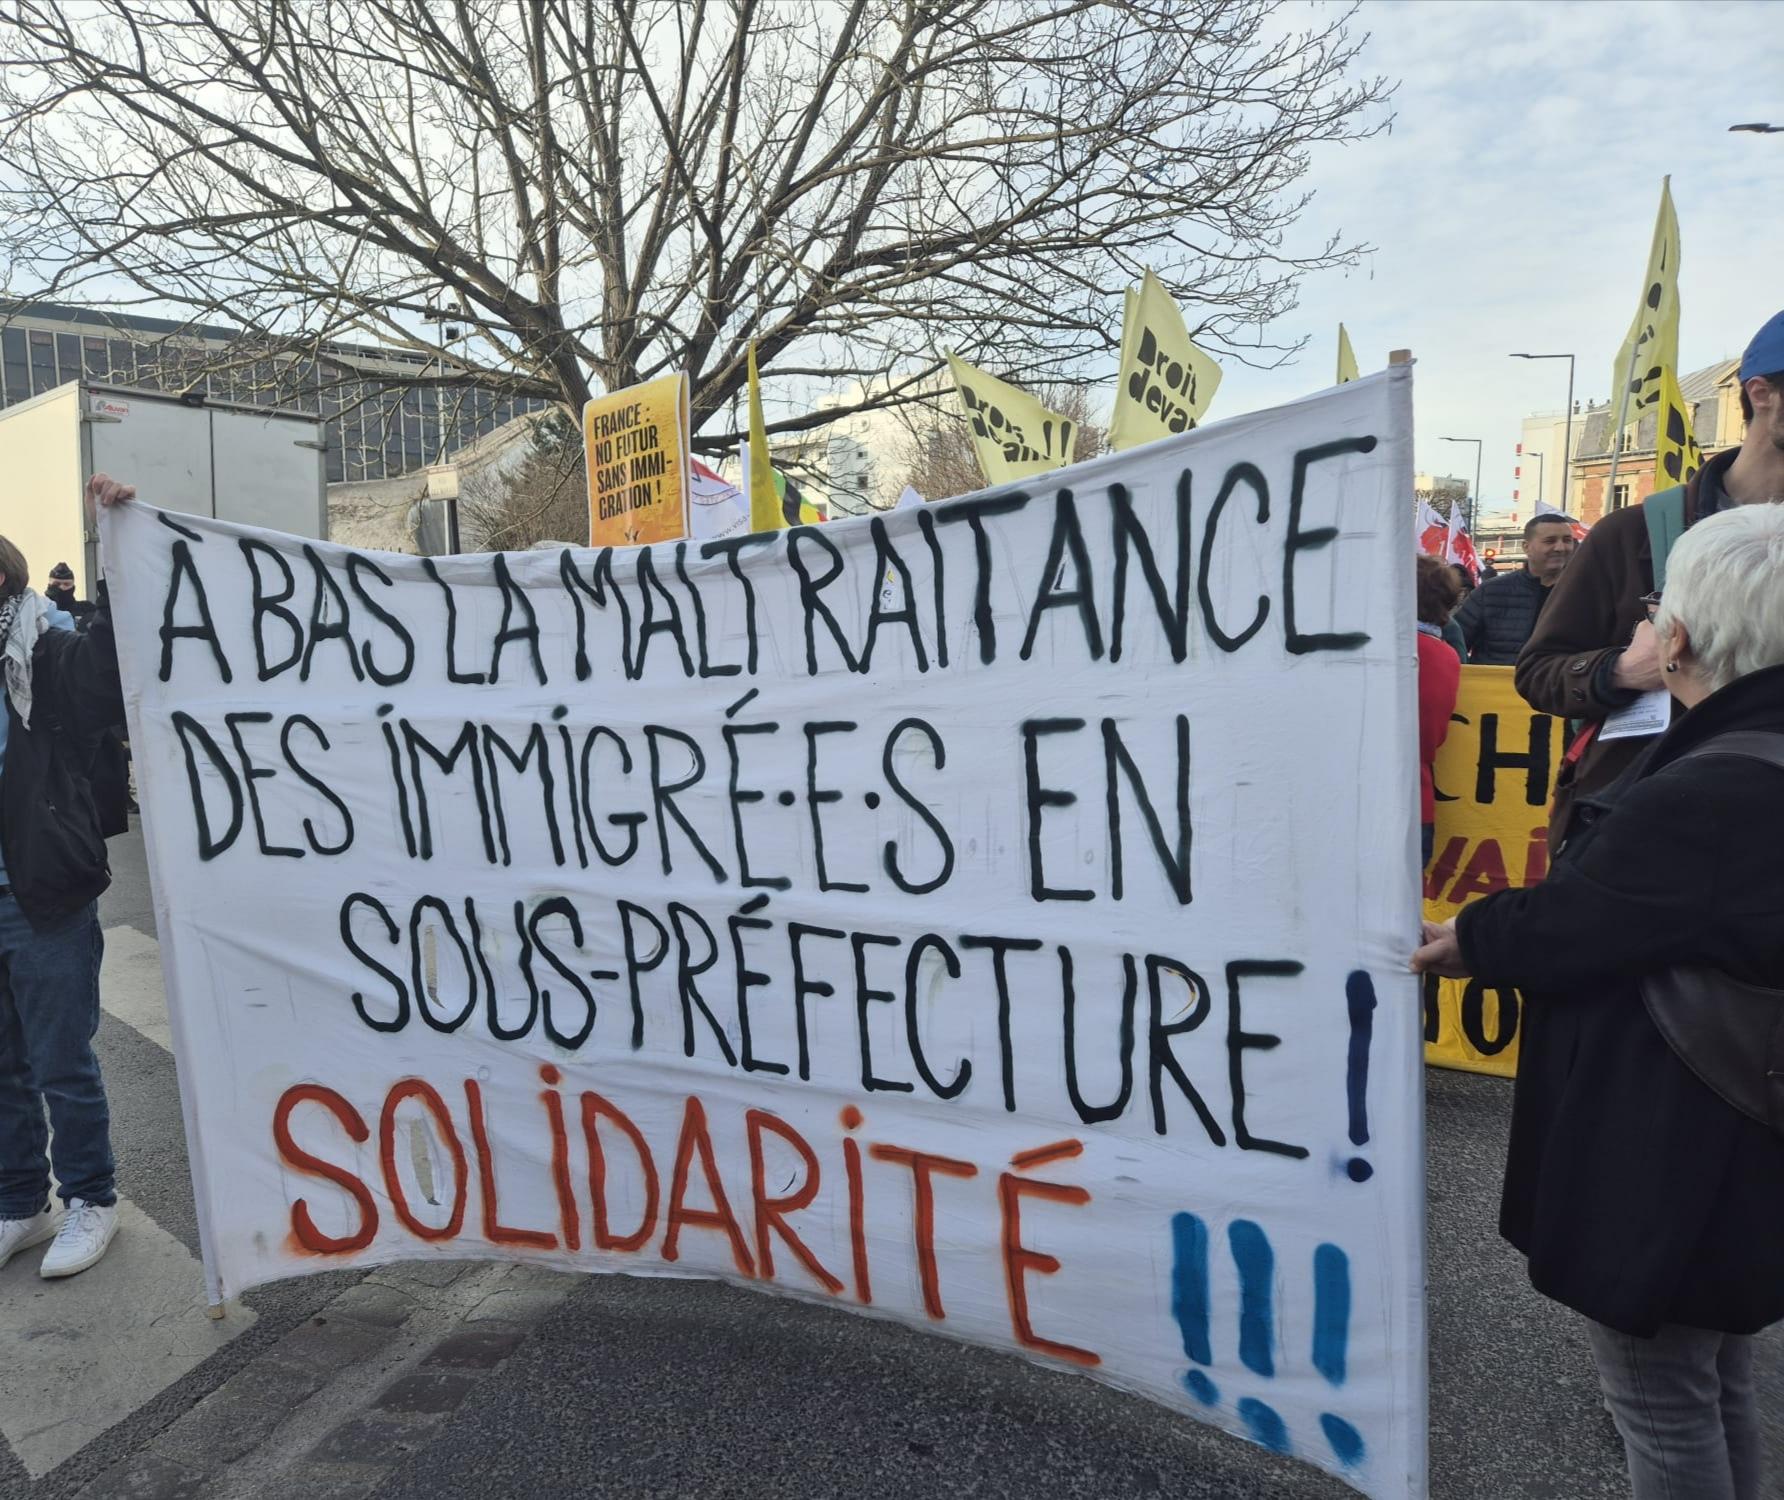 FRANCE :
NO FUTUR
SANS IMMI-
GRATION !
Droit
devant
Droit
devant !!
À BAS LA MALTRAITANCE
DES IMMIGRÉ·E·S EN
SOUS-PRÉFECTURE !
SOLIDARITÉ !!!
CH
VAi